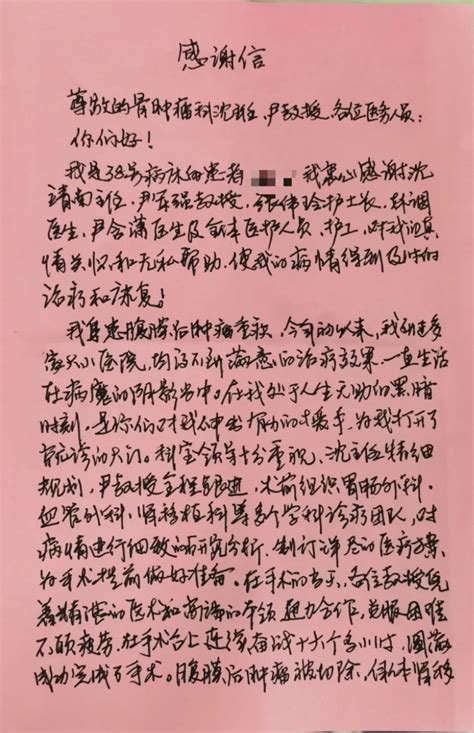 感谢信
尊敬的骨肿瘤科沈主任、尹教授、各位医务人员：
你们好！
我是38号病床的患者 我衷心感谢沈
靖南主任、尹军强教授、张伟玲护士长、林润
医生、尹含潇医生及全体医护人员、护工，对我的真
情关怀和无私帮助，使我的病情得到及时的
治疗和康复！
我身患腹膜后肿瘤重症，今年初以来，我到过多
家大小医院，均得不到满意的治疗效果，一直生活
在病魔的阴影当中。在我处于人生无助的黑暗
时刻，是你们对我伸出有力的援手，为我打开了
就诊的大门。科室领导十分重视，沈主任精细
规划，尹教授全程跟进，术前组织胃肠外科、
血管外科、肾移植科等多个学科诊疗团队，对
病情进行细致的研究分析，制订详尽的医疗方案，
为手术提前做好准备。在手术的当天，各位教授凭
着精湛的医术和高端的本领通力合作，克服困难
不顾疲劳，在手术台上连续奋战十六个多小时，圆满
成功完成了手术。腹膜后肿瘤被切除，体本肾移